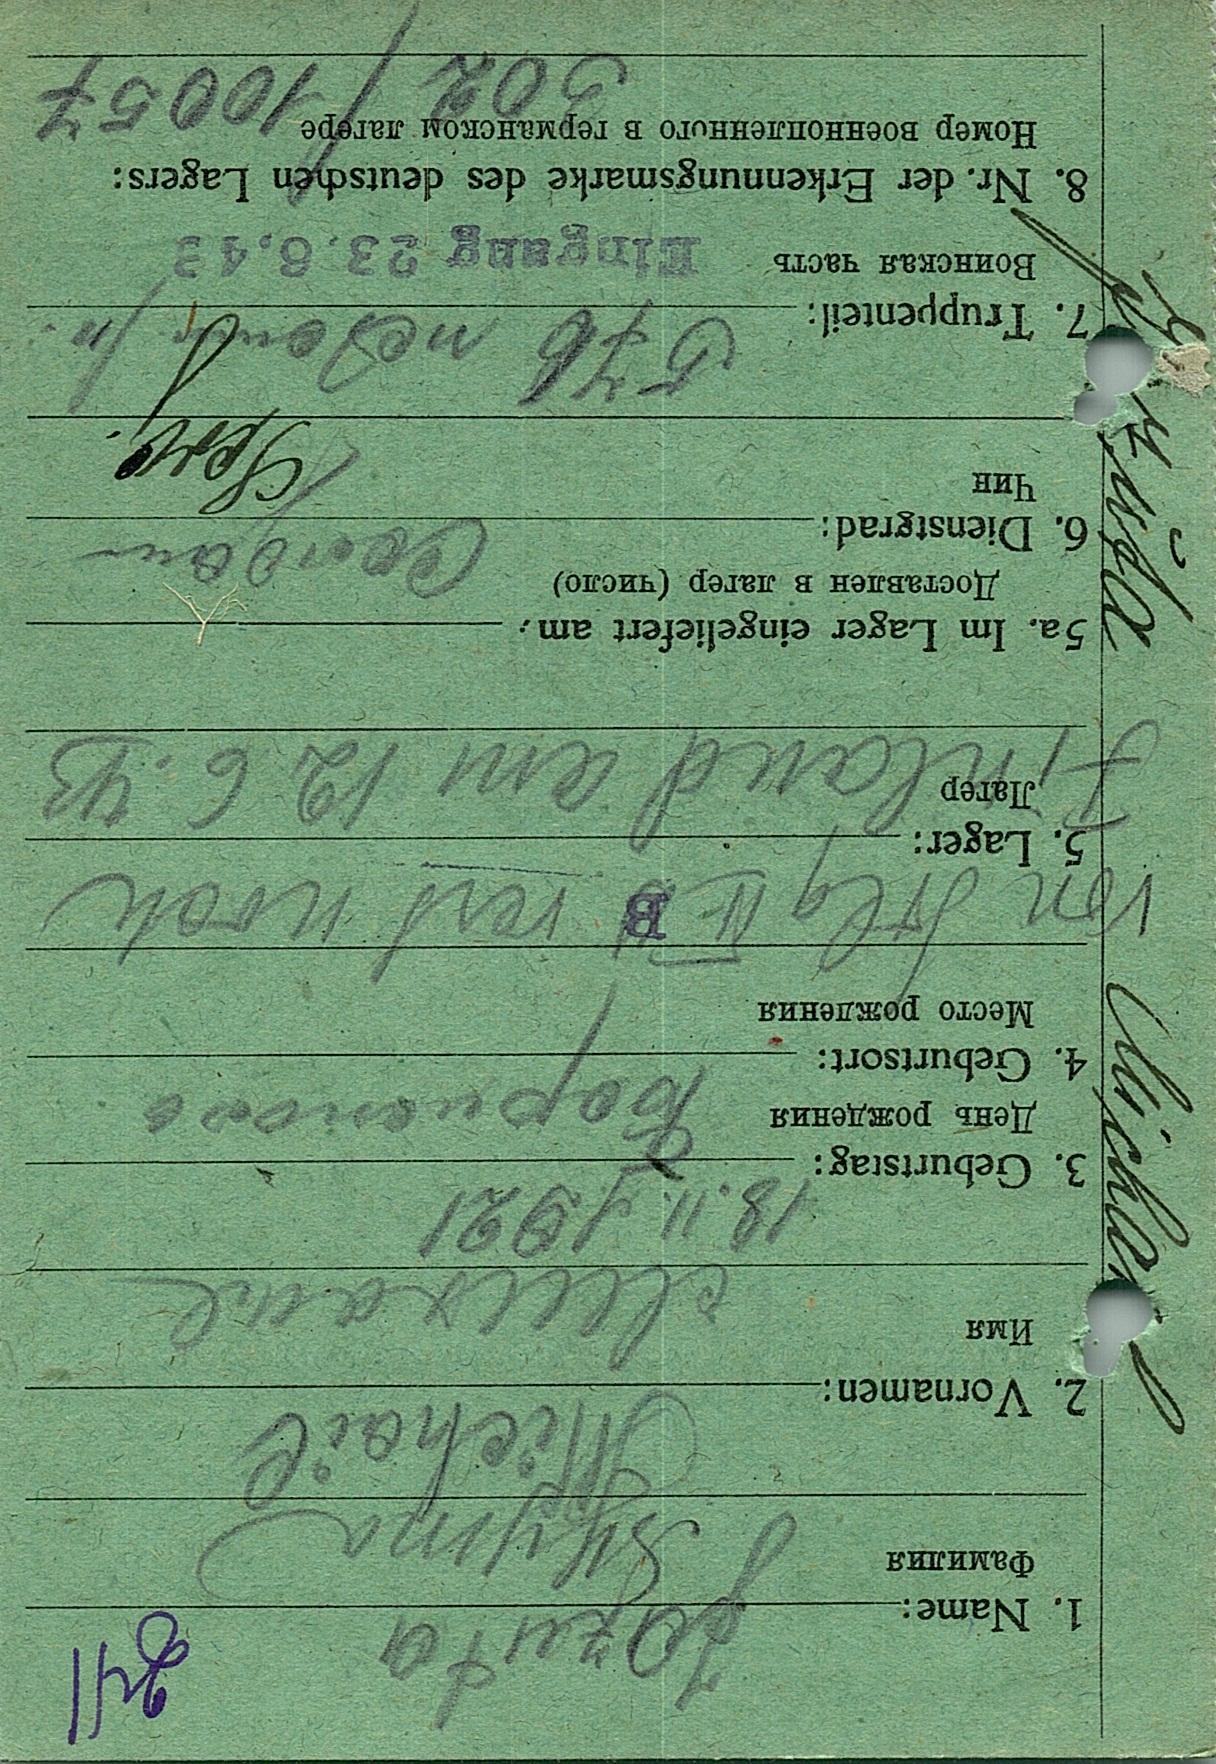 241
Jazuta
1. Name:
Фамилия
Язута
Michail
2. Vornamen:
Имя
Михаил
18.11.1921
3. Geburtstag:
День рождения
4. Geburtsort:
Место рождения
von Stlg II B verl nach
5. Lager:
Лагер
Finland am 12.6.43
5a. Im Lager eingeliefert am:
Доставлен в лагер (число)
Солдат
6. Dienstgrad:
Чин
576
7. Truppenteil:
Воинская часть
Eingang 23.6.43
8. Nr. der Erkennungsmarke des deutschen Lagers:
Номер военнопленного в германском лагере
302 / 10057
Michail